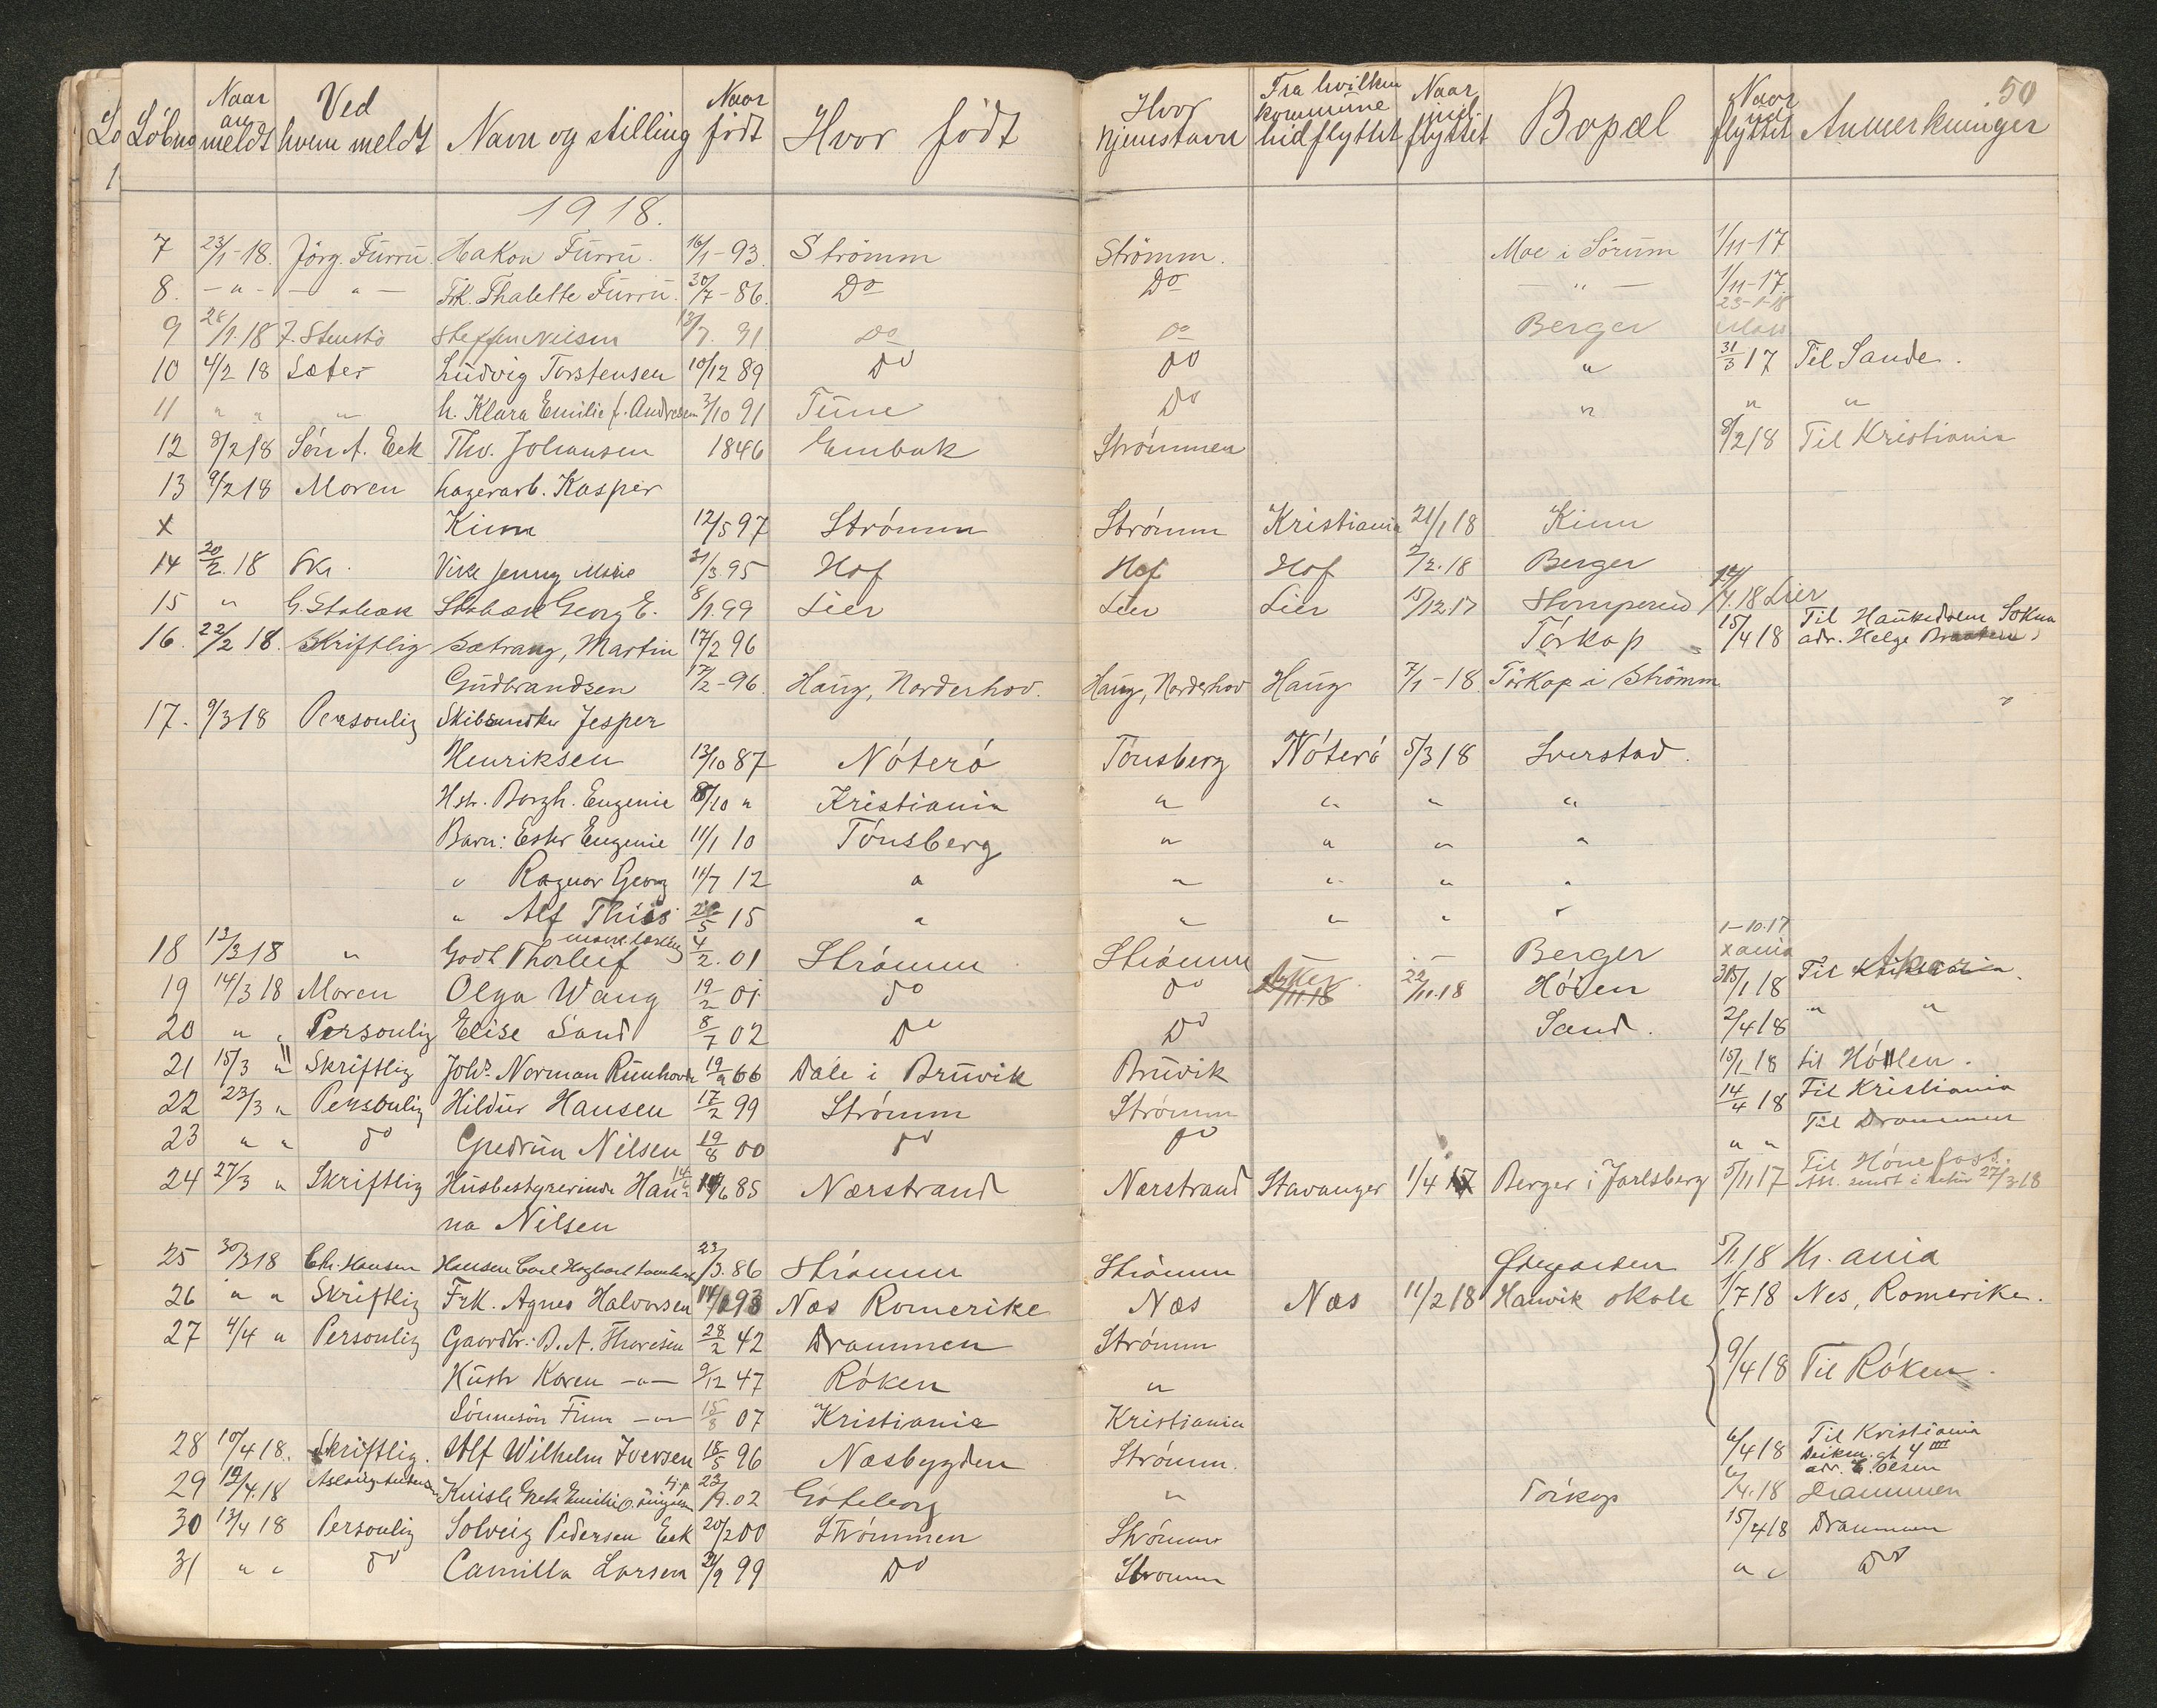 50
Löbno | Naar anmeldt | Ved hvem meldt | Navn og stilling | Naar födt | Hvor födt | Hvor hjemstavn | Fra hvilken kommune hidflyttet | Naar indflyttet | Bopæl | Naar udflyttet | Anmerkninger
1918.
7 23/1-18. Jörg. Furru. Hakon Furru. 16/1-93. Strömm Strömm. Moe i Sörum 1/11-17
8. -"- -"- Frk. Thalette Furru. 30/7-86. Do Do -"- 1/11-17
23-1-18
9 28/1.18 F. Stenstö Steffen Nilsen 13/7. 91 Do Do Berger
10 4/2 18 Sæter Ludvig Torstensen 10/12 89 Do Do " 31/3 17 Til Sande.
11 " " " h. Klara Emilie f. Andresen 3/10 91 Tune Do " " "
12 8/2 18 Sön A. Eck Thv. Johansen 1846 Enebak Strömmen 8/2 18 Til Kristiania
13 9/2 18 Moren Lagerarb. Kasper
x Kinn 12/5 97 Strömm Strömm Kristiania 21/1 18 Kinn
14 20/2.18 Skr. Vike Jenny Marie 21/3.95 Hof Hof Hof 2/2.18 Berger
15 " G. Stabæk Stabæk Georg E. 8/1.99 Lier Lier Lier 15/12.17 Stomperud 14/4.18 Lier
16. 22/2 18. Skriftlig Sætrang, Martin 17/2 96 Törkop 15/4 18 Til Haukedalen Sokna
adr. Helge Braaten
Gudbrandsen 17/2-96. Haug, Norderhov. Haug, Norderhov Haug 7/1-18 Törkop i Strömm
17. 9/3 18 Personlig Skibsmdkr Jesper
Henriksen 13/10 87 Nöterö Tönsberg Nöterö 5/3 18 Sverstad.
Hstr. Borgh. Eugenie 8/10 " Kristiania " " " "
Barn: Ester Eugenie 11/1 10 Tönsberg " " " "
" Ragnar Georg 11/7 12 " " " " "
" Alf Thiis 28/5 15 " " " " "
1-10.17
18 13/3 18 " Godt Thorleif 4/2.01 Strömm Strömm - - Berger xania
19 14/3 18 Moren Olga Wang 19/2 01 do do Asker 22/11.18 Höien 30/1 18 Til Kristiania. Asker
20 " " Personlig Elise Sand 8/7 02 Do Do Sand. 2/4 18 " "
21 15/3 " Skriftlig Johs. Norman Runhovde 19/9 66 Dale i Bruvik Bruvik 15/1 18 til Hölen.
22 23/3 " Personlig Hildur Hansen 17/2 99 Strömm Strömm 14/4 18 Til Kristiania
23 " " do Gudrun Nilsen 19/8 00 do do " " Til Drammen
24 27/3 " Skriftlig Husbestyrerinde Han- 14/6 85 Nærstrand Nærstrand Stavanger 1/4 17 Berger i Jarlsberg 5/11 17 Til Hönefoss.
Att. sendt i retur 27/3 18
na Nilsen
25 30/3 18 Chr. Hansen Hansen Carl Hagbart 23/3.86 Strömm Strömm 5/1.18 Kr.ania
26 " " Skriftlig Frk. Agnes Halvorsen 14/2 93 Næs Romerike Næs Næs 11/2 18 Hanvik skole 1/7 18 Nes, Romerike.
27 4/4 " Personlig Gaardbr. B. A. Thoresen 28/2 42 Drammen Strömm
Hustr Karen -"- 9/12 47 Röken " 9/4 18 Til Röken.
Sönnesön Finn -"- 15/8 07 Kristiania Kristiania
28 10/4 18. Skriftlig. Alf Wilhelm Iversen 18/5 96 Næsbygden Strömm. 6/4 18 Til Kristiania
Deikm. gt 4 III
adr. C. Olsen
29 12/4.18 23/9.02 Göteborg " Törkop 6/4.18 Drammen
30 13/4 18 Personlig Solveig Pedersen Eek 20/2 00 Strömmen Strömm 15/4 18 Drammen
31 " " do Camilla Larsen 21/9 99 Do Stromm " " Do